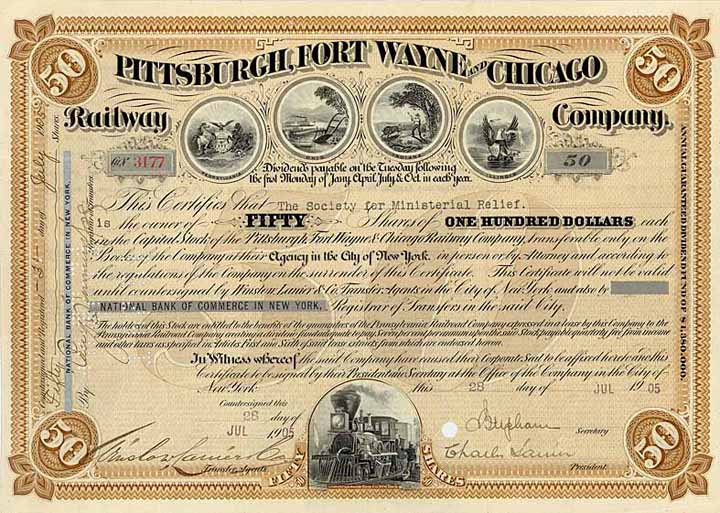 50
50
PITTSBURGH, FORT WAYNE AND CHICAGO
Railway
Company.
PENNSYLVANIA
ILLINOIS
No. 3177
50
Dividends payable on the Tuesday following
the first Monday of Jany, April, July & Oct. in each year.
This Certifies that The Society for Ministerial Relief.
is the owner of FIFTY Shares of ONE HUNDRED DOLLARS each
in the Capital Stock of the Pittsburgh, Fort Wayne & Chicago Railway Company, transferable only on the
Books of the Company at their Agency in the City of New York, in person or by Attorney and according to
the regulations of the Company on the surrender of this Certificate. This Certificate will not be valid
until countersigned by Winslow, Lanier & Co. Transfer Agents in the City of New York and also by
NATIONAL BANK OF COMMERCE IN NEW YORK, Registrar of Transfers in the said City.
The holders of this Stock are entitled to the benefits of the guarantee of the Pennsylvania Railroad Company expressed in a lease by this Company to the
Pennsylvania Railroad Company
In Witness whereof, the said Company have caused their Corporate Seal to be affixed hereto and this
Certificate to be signed by their President and the Secretary at the Office of the Company in the City of
New York this 28 day of JUL 1905
Countersigned this
28 day of
JUL 1905
Winslow Lanier & Co
Transfer Agents
Secretary
Charles Lanier
President.
FIFTY SHARES
50
50
NATIONAL BANK OF COMMERCE IN NEW YORK,
ANNUAL GUARANTEED DIVIDEND FUND OF $1,380,000.